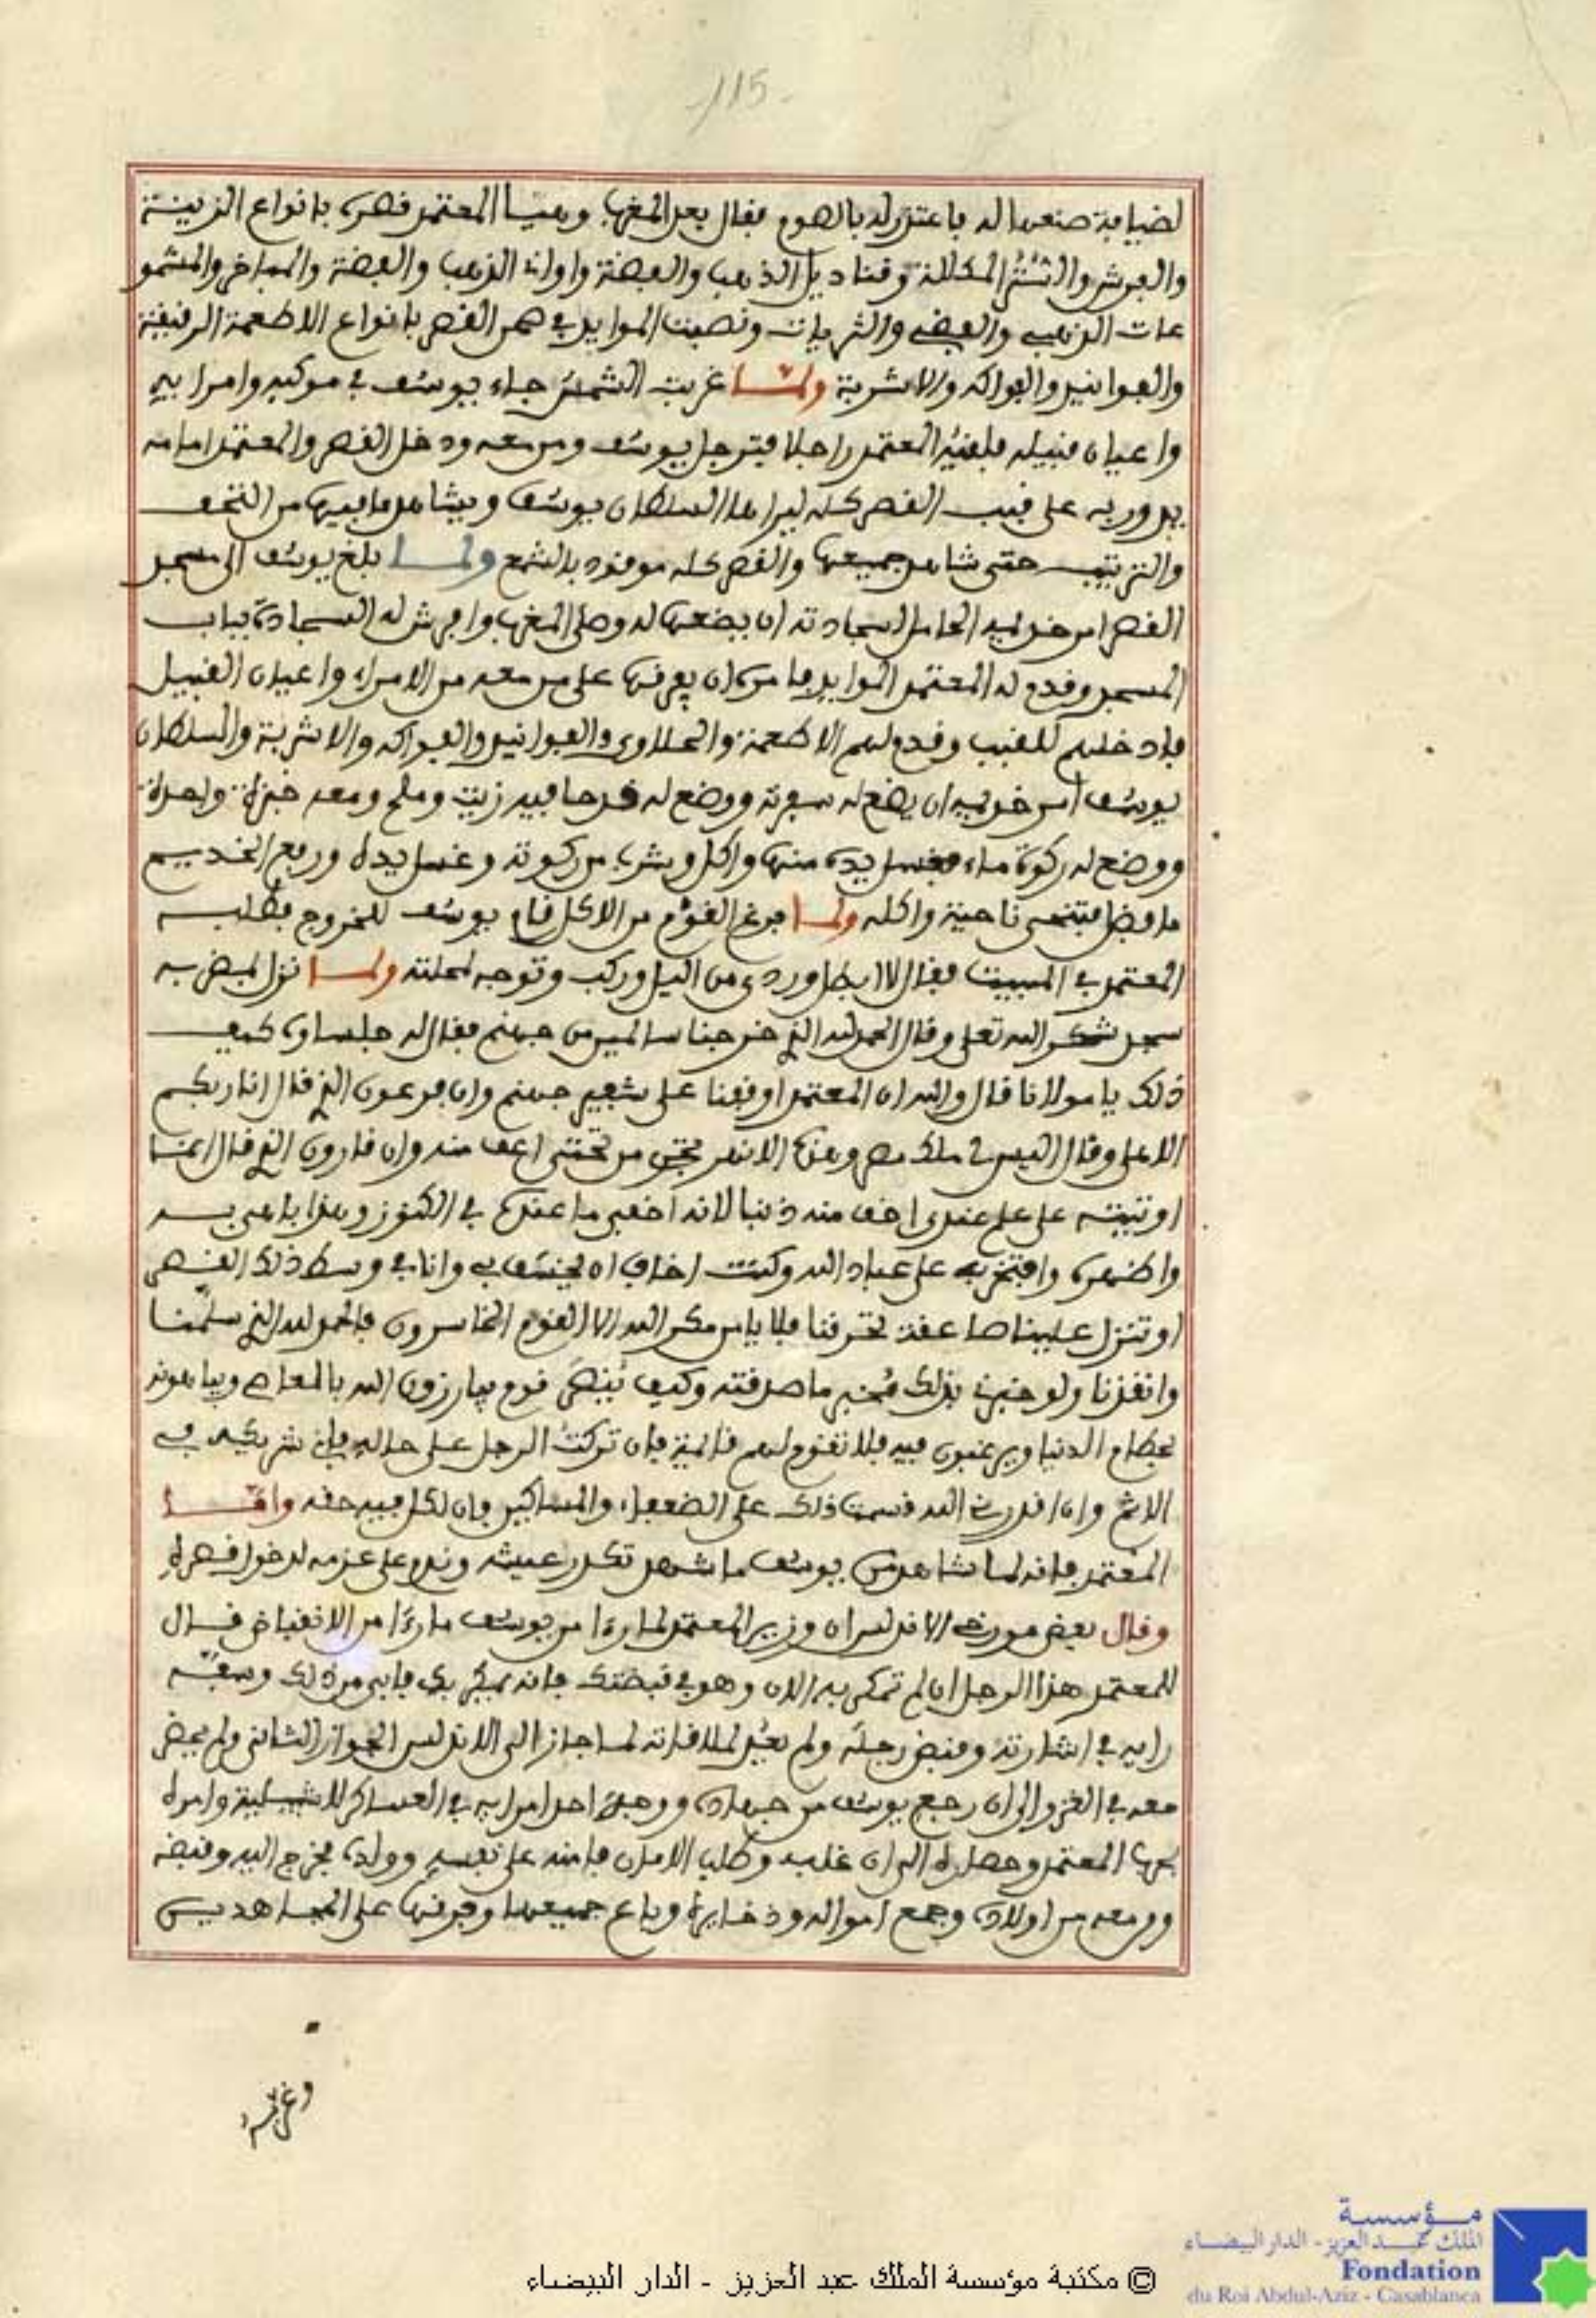 115
لضيافة صنعها له فاعتذر له بالصوم فقال بعد المغرب وهيا المعتمد قصره بانواع الزينة
والفرش والستر المكللة وقناديل الذهب والفضة واواني الذهب والفضة والمباخر والمشمو
عات الذهبي والفضي والثريات ونصبت الموايد في صحن القصر بانواع الاطعمة الرفيعة
والفوانيد والفواكه والاشربة ولما غربت الشمس جاء يوسف في موكبه وامرايه
واعيان قبيله فلقيه المعتمد راجلا فترجل يوسف ومن معه ودخل القصر والمعتمد امامه
يدور به على قبب القصر كله ليرا ها السلطان يوسف ويشاهد ما فيها من التحف
والترتيب حتى شاهد جميعها والقصر كله موقود بالشمع ولما بلغ يوسف الى مسجد
القصر امر خديمه الحامل لسجادته ان يضعها له وصلى المغرب وافرش له السجادة بباب
المسجد وقدم له المعتمد الموايد فامره ان يفرقها على من معه من الامراء واعيان القبيل
فادخلهم للقبب وقدم لهم الاطعمة والحلاوي والفوانيد والفواكه والاشربة والسلطان
يوسف امر خديمه ان يضع له سفرته ووضع له قدحا فيه زيت وملح ومعه خبزة واحدة
ووضع له ركوة ماء فغسل يده منها واكل وشرب من ركوته وغسل يده ورفع الخديم
ما فضل فتنحى ناحية واكله ولما فرغ القوم من الاكل قام يوسف للخروج فطلبه
المعتمد في المبيت فقال لا ابطل وردي من اليل وركب وتوجه لمحلته ولما نزل لمضربه
سجد شكر الله تعلى وقال الحمد لله الذي خرجنا سالمين من جهنم فقال له جلساؤه كيف
ذلك يا مولانا قال والله ان المعتمد اوقفنا على شفير جهنم وان فرعون الذي قال انا ربكم
الاعلى وقال اليس لي ملك مصر وهذه الانهر تجري من تحتي اعف منه وان قارون الذي قال انما
اوتيته على علم عندي اخف منه ذنبا لانه اخفى ما عنده في الكنوز وهذا باهى به
واظهره وافتخر به على عباد الله وكنت اخاف ان يخسف به وانا في وسط ذلك القصر
او تنزل علينا صاعقة تحرقنا فلا يامن مكر الله الا القوم الخاسرون فالحمد لله الذي سلمنا
وانقذنا ولو خبرني بذلك مخبر ما صدقته وكيف ينصر قوم يبارزون الله بالمعاصي ويباهونه
بحطام الدنيا ويرغبون فيه فلا تقوم لهم قايمة فان تركت الرجل على حاله فاني شريكه في
الاثم وان اقدرني الله قسمت ذلك على الضعفاء والمساكين فان لكل فيه حقه واما
المعتمد فانه لما شاهد من يوسف ما شهد تكدر عيشه وندم على عزمه لدخول قصره
وقال بعض مورخي الاندلس ان وزير المعتمد لما رءا من يوسف ما رءا من الانقباض قال
للمعتمد هذا الرجل ان لم تمكر به الان وهو في قبضتك فانه يمكر بك فابى من ذلك وسفه
رايه في اشارته وقبض رجله ولم يعد لملاقاته لما جاز الى الاندلس الجواز الثاني ولم يحضر
معه في الغزو الى ان رجع يوسف من جهاده ووجه احد امرايه في العساكر لاشبيلية وامره
بها المعتمد وحصره الى ان غلب وطلب الامان فامنه على نفسه وولده فخرج اليه وقبضه
ومن معه من اولاده وجمع امواله وذخايرها وباع جميعها وفرقها على المجاهدين
© مكتبة مؤسسة الملك عبد العزيز - الدار البيضاء
مؤسسة
الملك عبد العزيز - الدار البيضاء
Fondation
du Roi Abdul-Aziz - Casablanca